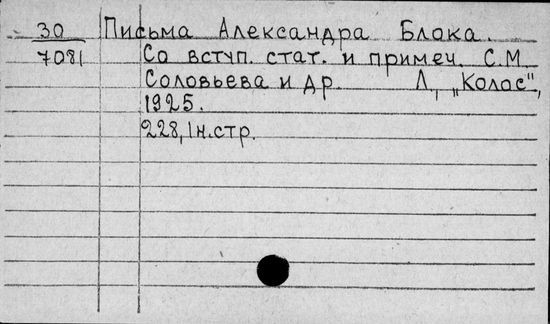 30 Письма Александра Блока.
7081 Со вступ. стат. и примеч. С.М.
Соловьева и др. Л., „Колос",
1925.
228, 1н.стр.